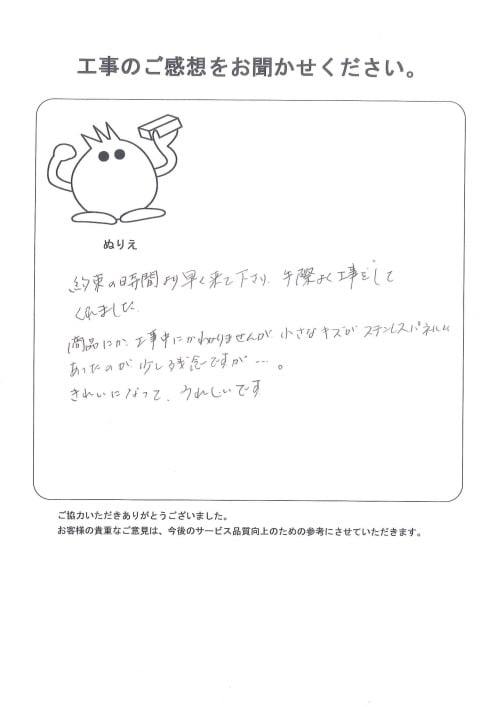 工事のご感想をお聞かせください。
ぬりえ
約束の時間より早く来て下さり、手際よく工事をして
くれました。
商品にか、工事中にかわかりませんが、小さなキズがステンレスパネルに
あったのが少し残念ですが…。
きれいになって、うれしいです
ご協力いただきありがとうございました。
お客様の貴重なご意見は、今後のサービス品質向上のための参考にさせていただきます。